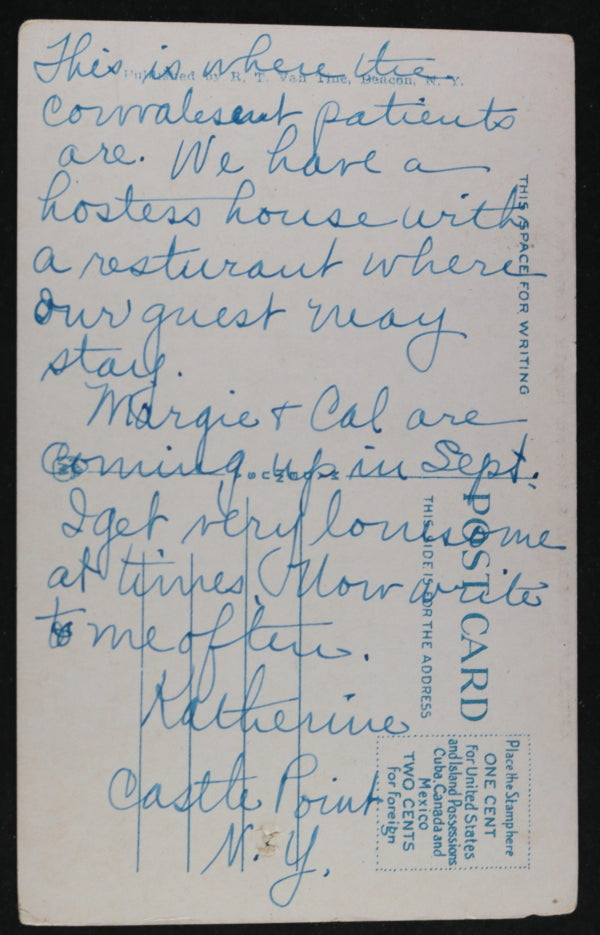 This is where the
Published by R. T. Van Tine, Beacon, N. Y.
convalesent patients
are. We have a
hostess house with
a resturant where
our guest may
stay.
Margie & Cal are
coming up in Sept.
I get very lonesome
at times. Now write
to me often.
Katherine
Castle Point
N. Y.
THIS SPACE FOR WRITING
POST CARD
THIS SIDE IS FOR THE ADDRESS
Place the Stamp here
ONE CENT
For United States
and Island Possessions
Cuba, Canada and
Mexico
TWO CENTS
For Foreign